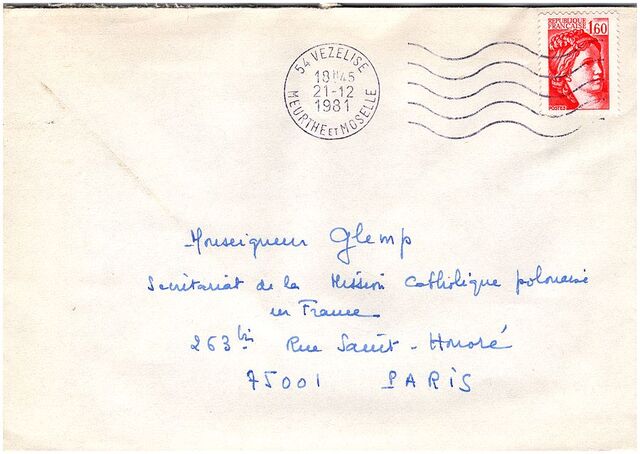 RÉPUBLIQUE
FRANÇAISE 1,60
POSTES
54 VEZELISE
18H45
21-12
1981
MEURTHE ET MOSELLE
Monseigneur Glemp
Secrétariat de la Mission Catholique polonaise
en France
263 bis Rue Saint-Honoré
75001 PARIS